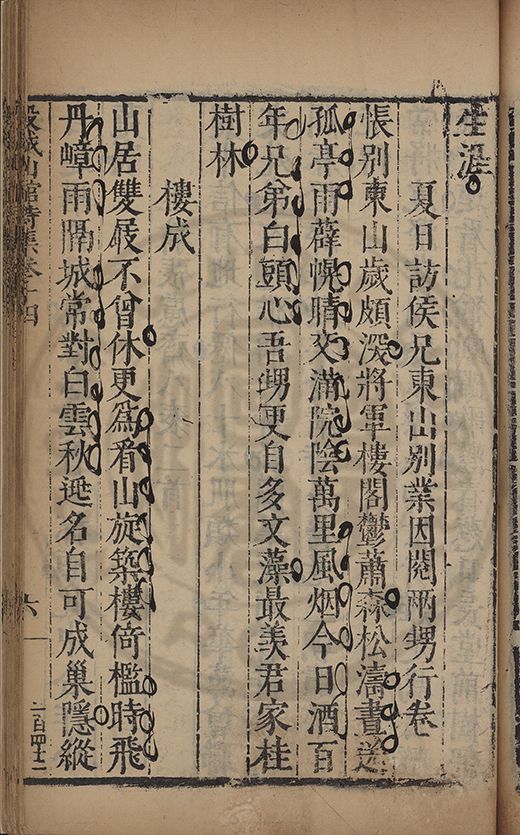 生涯
夏日訪侯兄東山別業因閱兩甥行卷
悵別東山歲頗深將軍樓閣鬱蕭森松濤晝送
孤亭雨薜幌晴交滿院陰萬里風烟今日酒百
年兄弟白頭心吾甥更自多文藻最羨君家桂
樹林
樓成
山居雙屐不曾休更爲看山旋築樓倚檻時飛
丹嶂雨隔城常對白雲秋逃名自可成巢隱縱
穀城山館詩集卷十四
六